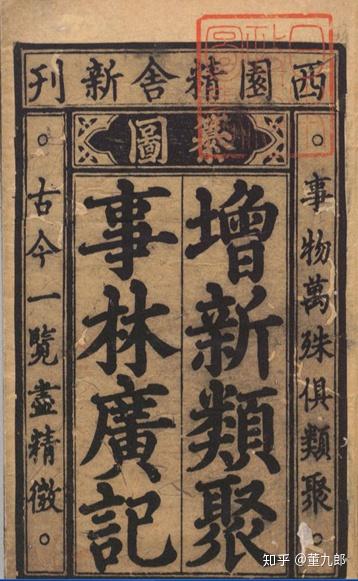 西園精舍新刊
纂圖
增新類聚
事林廣記
事物萬殊俱類聚。
古今一覽盡精微。
知乎 @董九郎